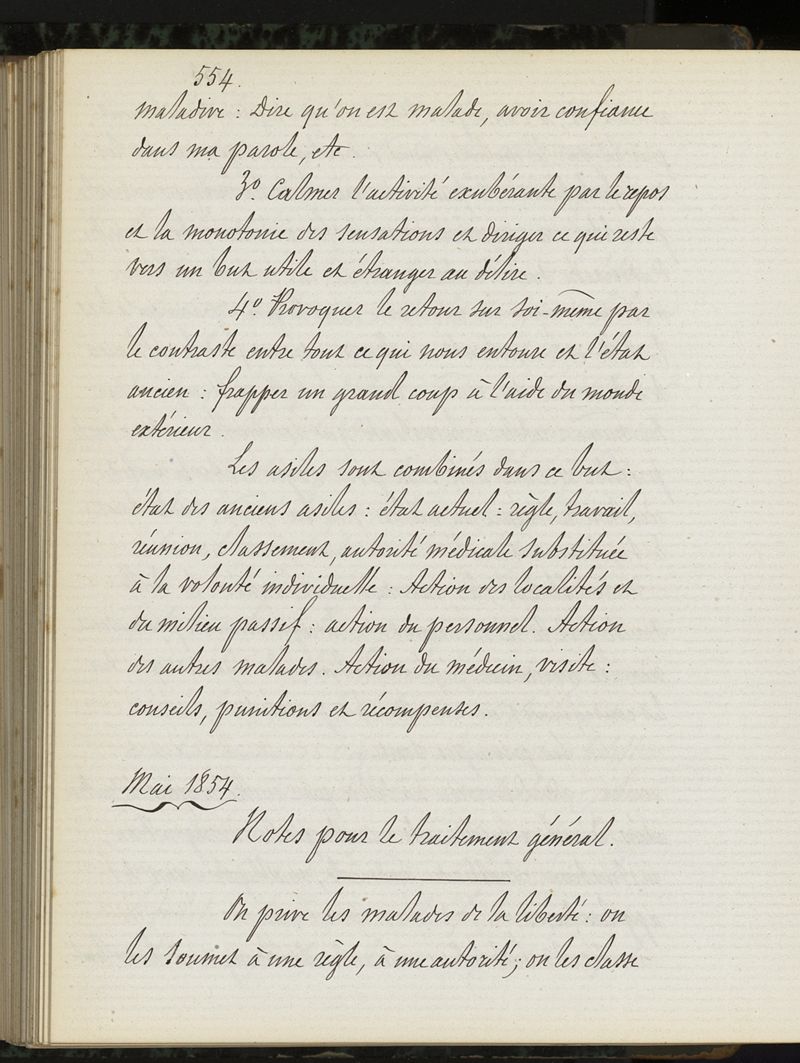 554.
maladive : Dire qu'on est malade, avoir confiance
dans ma parole, etc.
3º. Calmer l'activité exubérante par le repos
et la monotonie des sensations et diriger ce qui reste
vers un but utile et étranger au délire.
4º. Provoquer le retour sur soi-même par
le contraste entre tout ce qui nous entoure et l'état
ancien : frapper un grand coup à l'aide du monde
extérieur.
Les asiles sont combinés dans ce but :
état des anciens asiles : état actuel : règle, travail,
réunion, classement, autorité médicale substituée
à la volonté individuelle : Action des localités et
du milieu passif : action du personnel. Action
des autres malades. Action du médecin, visite :
conseils, punitions et récompenses.
Mai 1854.
Notes pour le traitement général.
On prive les malades de la liberté : on
les soumet à une règle, à une autorité ; on les classe